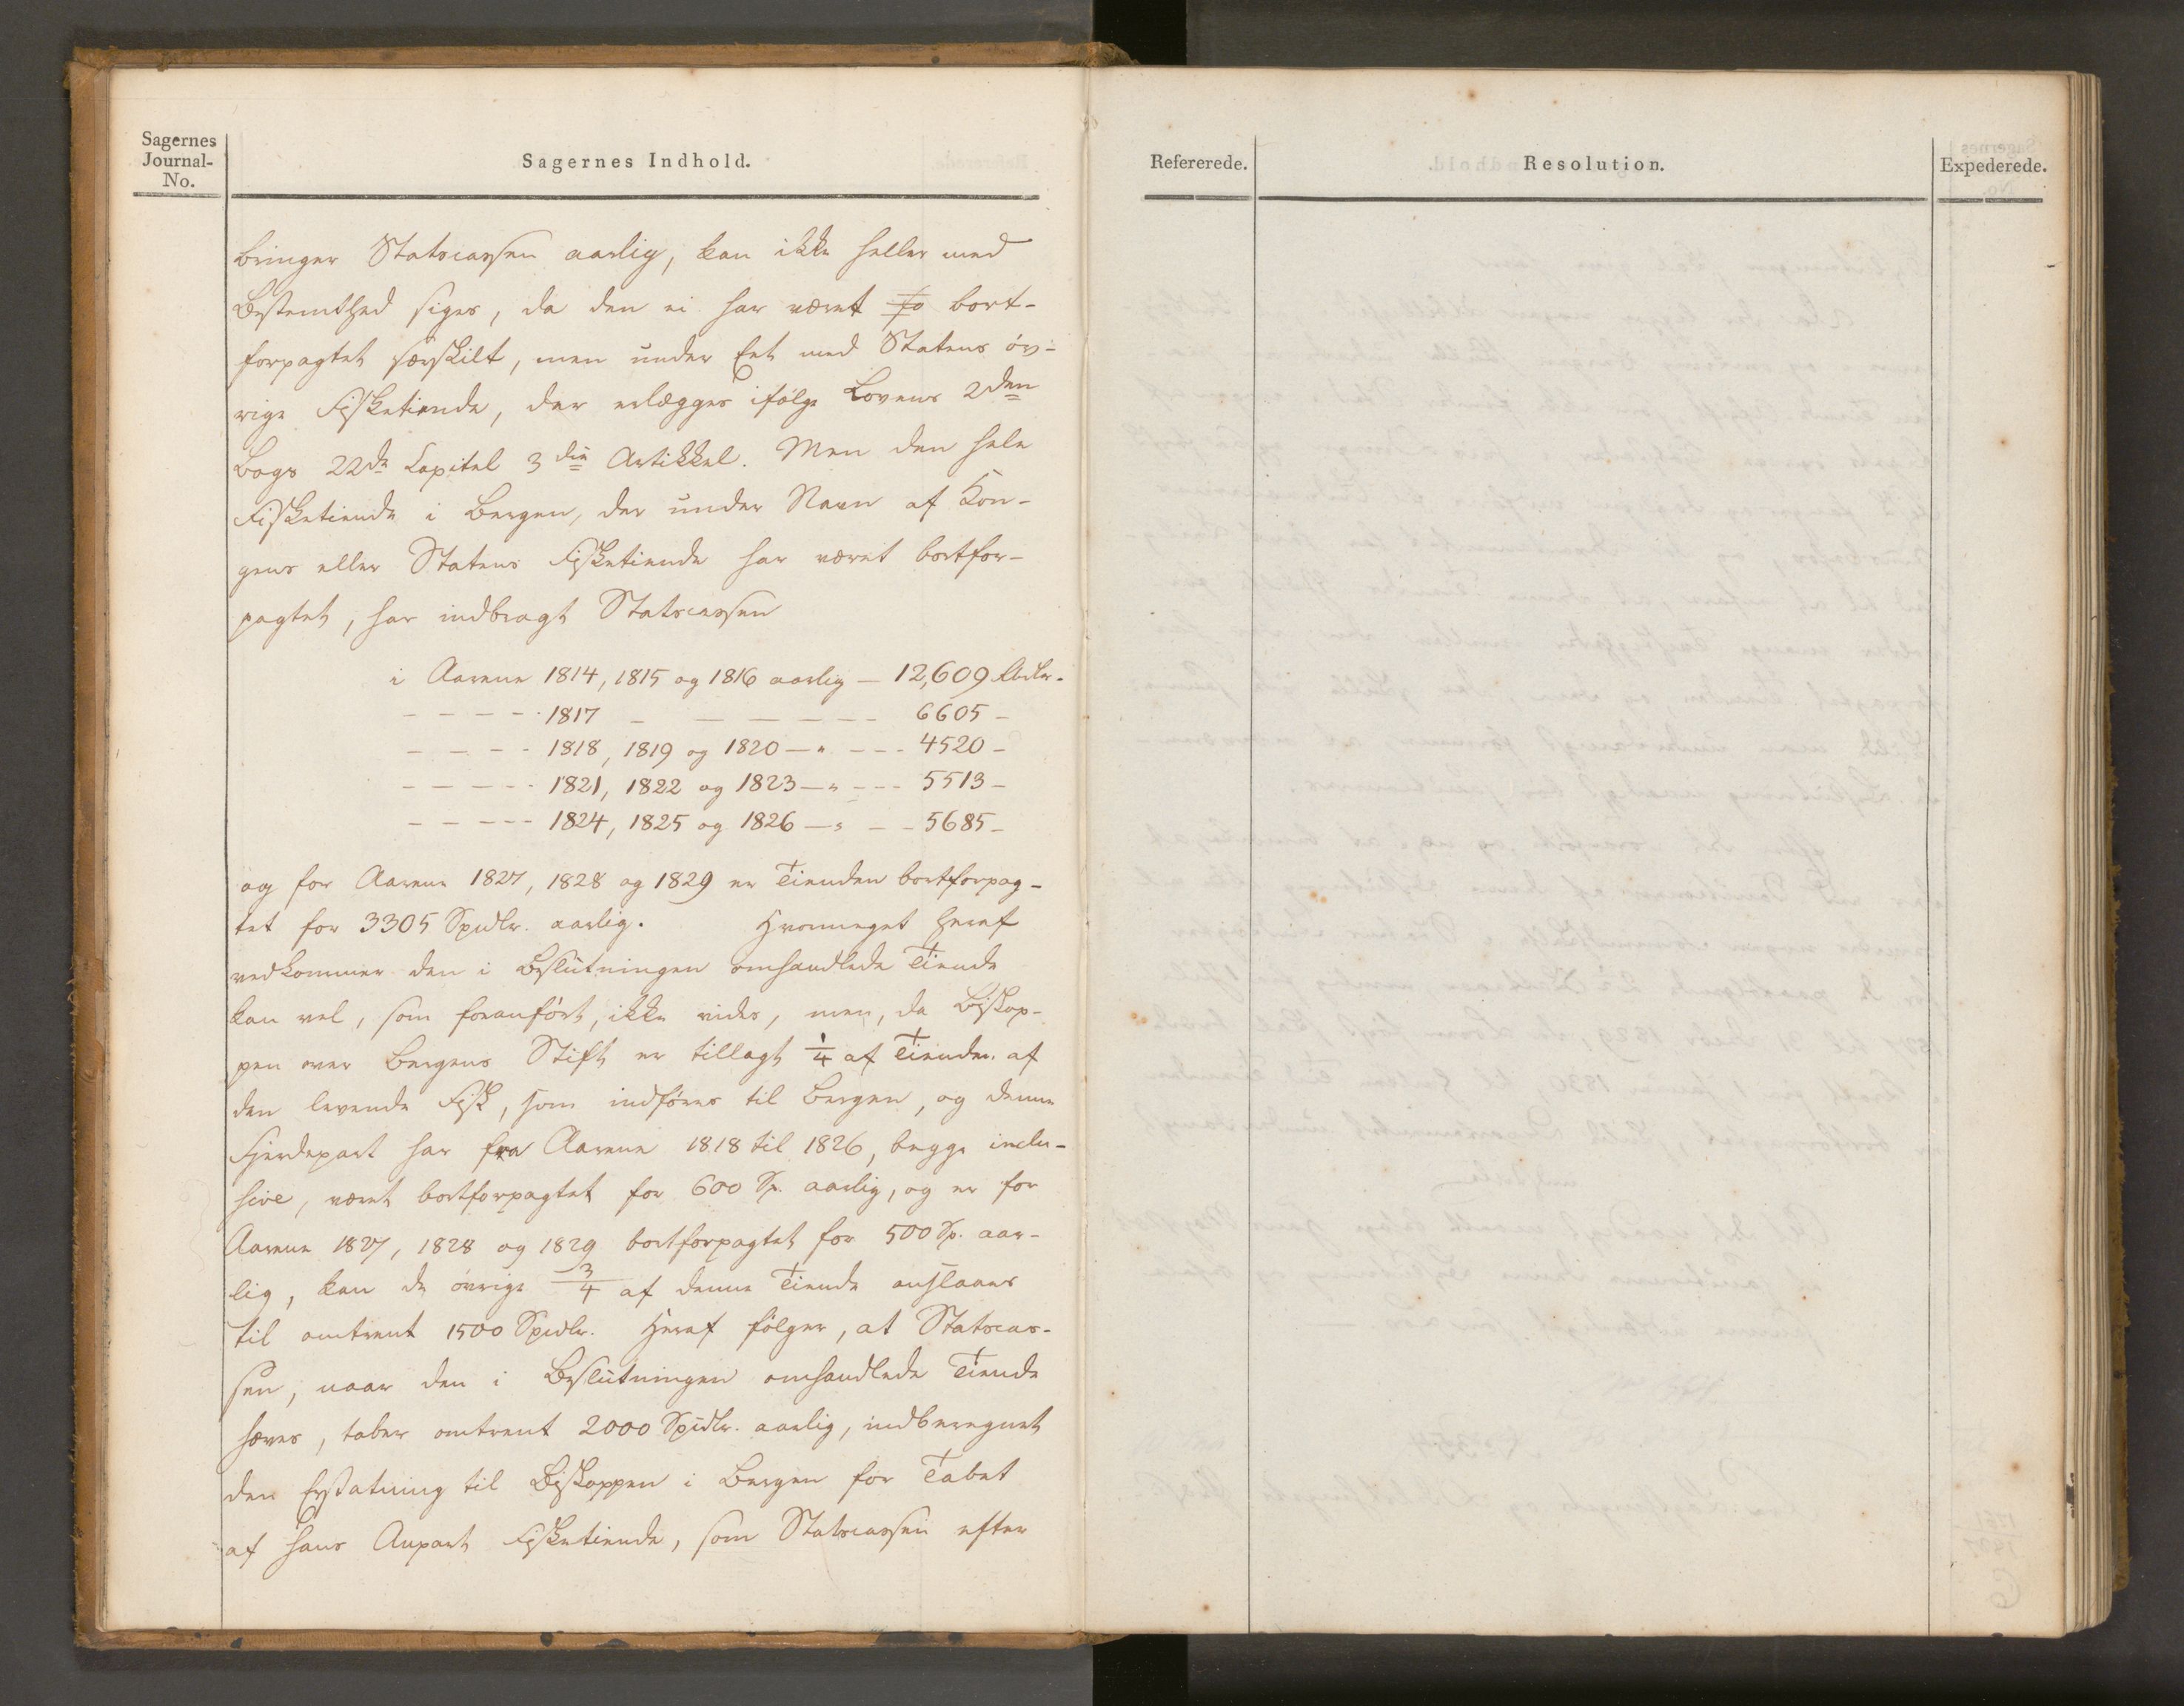 Sagernes
Journal-
No.
Sagernes Indhold.
bringer Statscassen aarlig, kan ikke heller med
Bestemthed siges, da den ei har været bort-
forpagtet særskilt, men under Eet med Statens öv-
rige Fisketiende, der erlægges ifölge Lovens 2den
Bogs 22de Capitel 3die Artikkel. Men den hele
Fisketiende i Bergen, der under Navn af Kon-
gens eller Statens Fisketiende har været bortfor-
pagtet, har indbragt Statscassen
i Aarene 1814, 1815 og 1816 aarlig — 12,609 Rbdlr.
- - - - - 1817 - — — — - - 6605 -
- - - - 1818, 1819 og 1820 — " - - - 4520 -
- - - - - 1821, 1822 og 1823 — " - - - 5513 -
- - - - - 1824, 1825 og 1826 — " - - 5685 -
og for Aarene 1827, 1828 og 1829 er Tienden bortforpag-
tet for 3305 Spdlr. aarlig. Hvormeget heraf
vedkommer den i Beslutningen omhandlede Tiende
kan vel, som foranfört, ikke vides, men, da Biskop-
pen over Bergens Stift er tillagt 1/4 af Tienden af
den levende Fisk, som indföres til Bergen, og denne
Fjerdepart har fra Aarene 1818 til 1826, begge inclu-
sive, været bortforpagtet for 600 Sp. aarlig, og er for
Aarene 1827, 1828 og 1829 bortforpagtet for 500 Sp. aar-
lig, kan de övrige 3/4 af denne Tiende anslaaes
til omtrent 1500 Spdlr. Heraf fölger, at Statscas-
sen, naar den i Beslutningen omhandlede Tiende
hæves, taber omtrent 2000 Spdlr. aarlig, indberegnet
den Erstatning til Biskoppen i Bergen for Tabet
af hans Anpart Fisketiende, som Statscassen efter
Refererede.
Resolution.
Expederede.